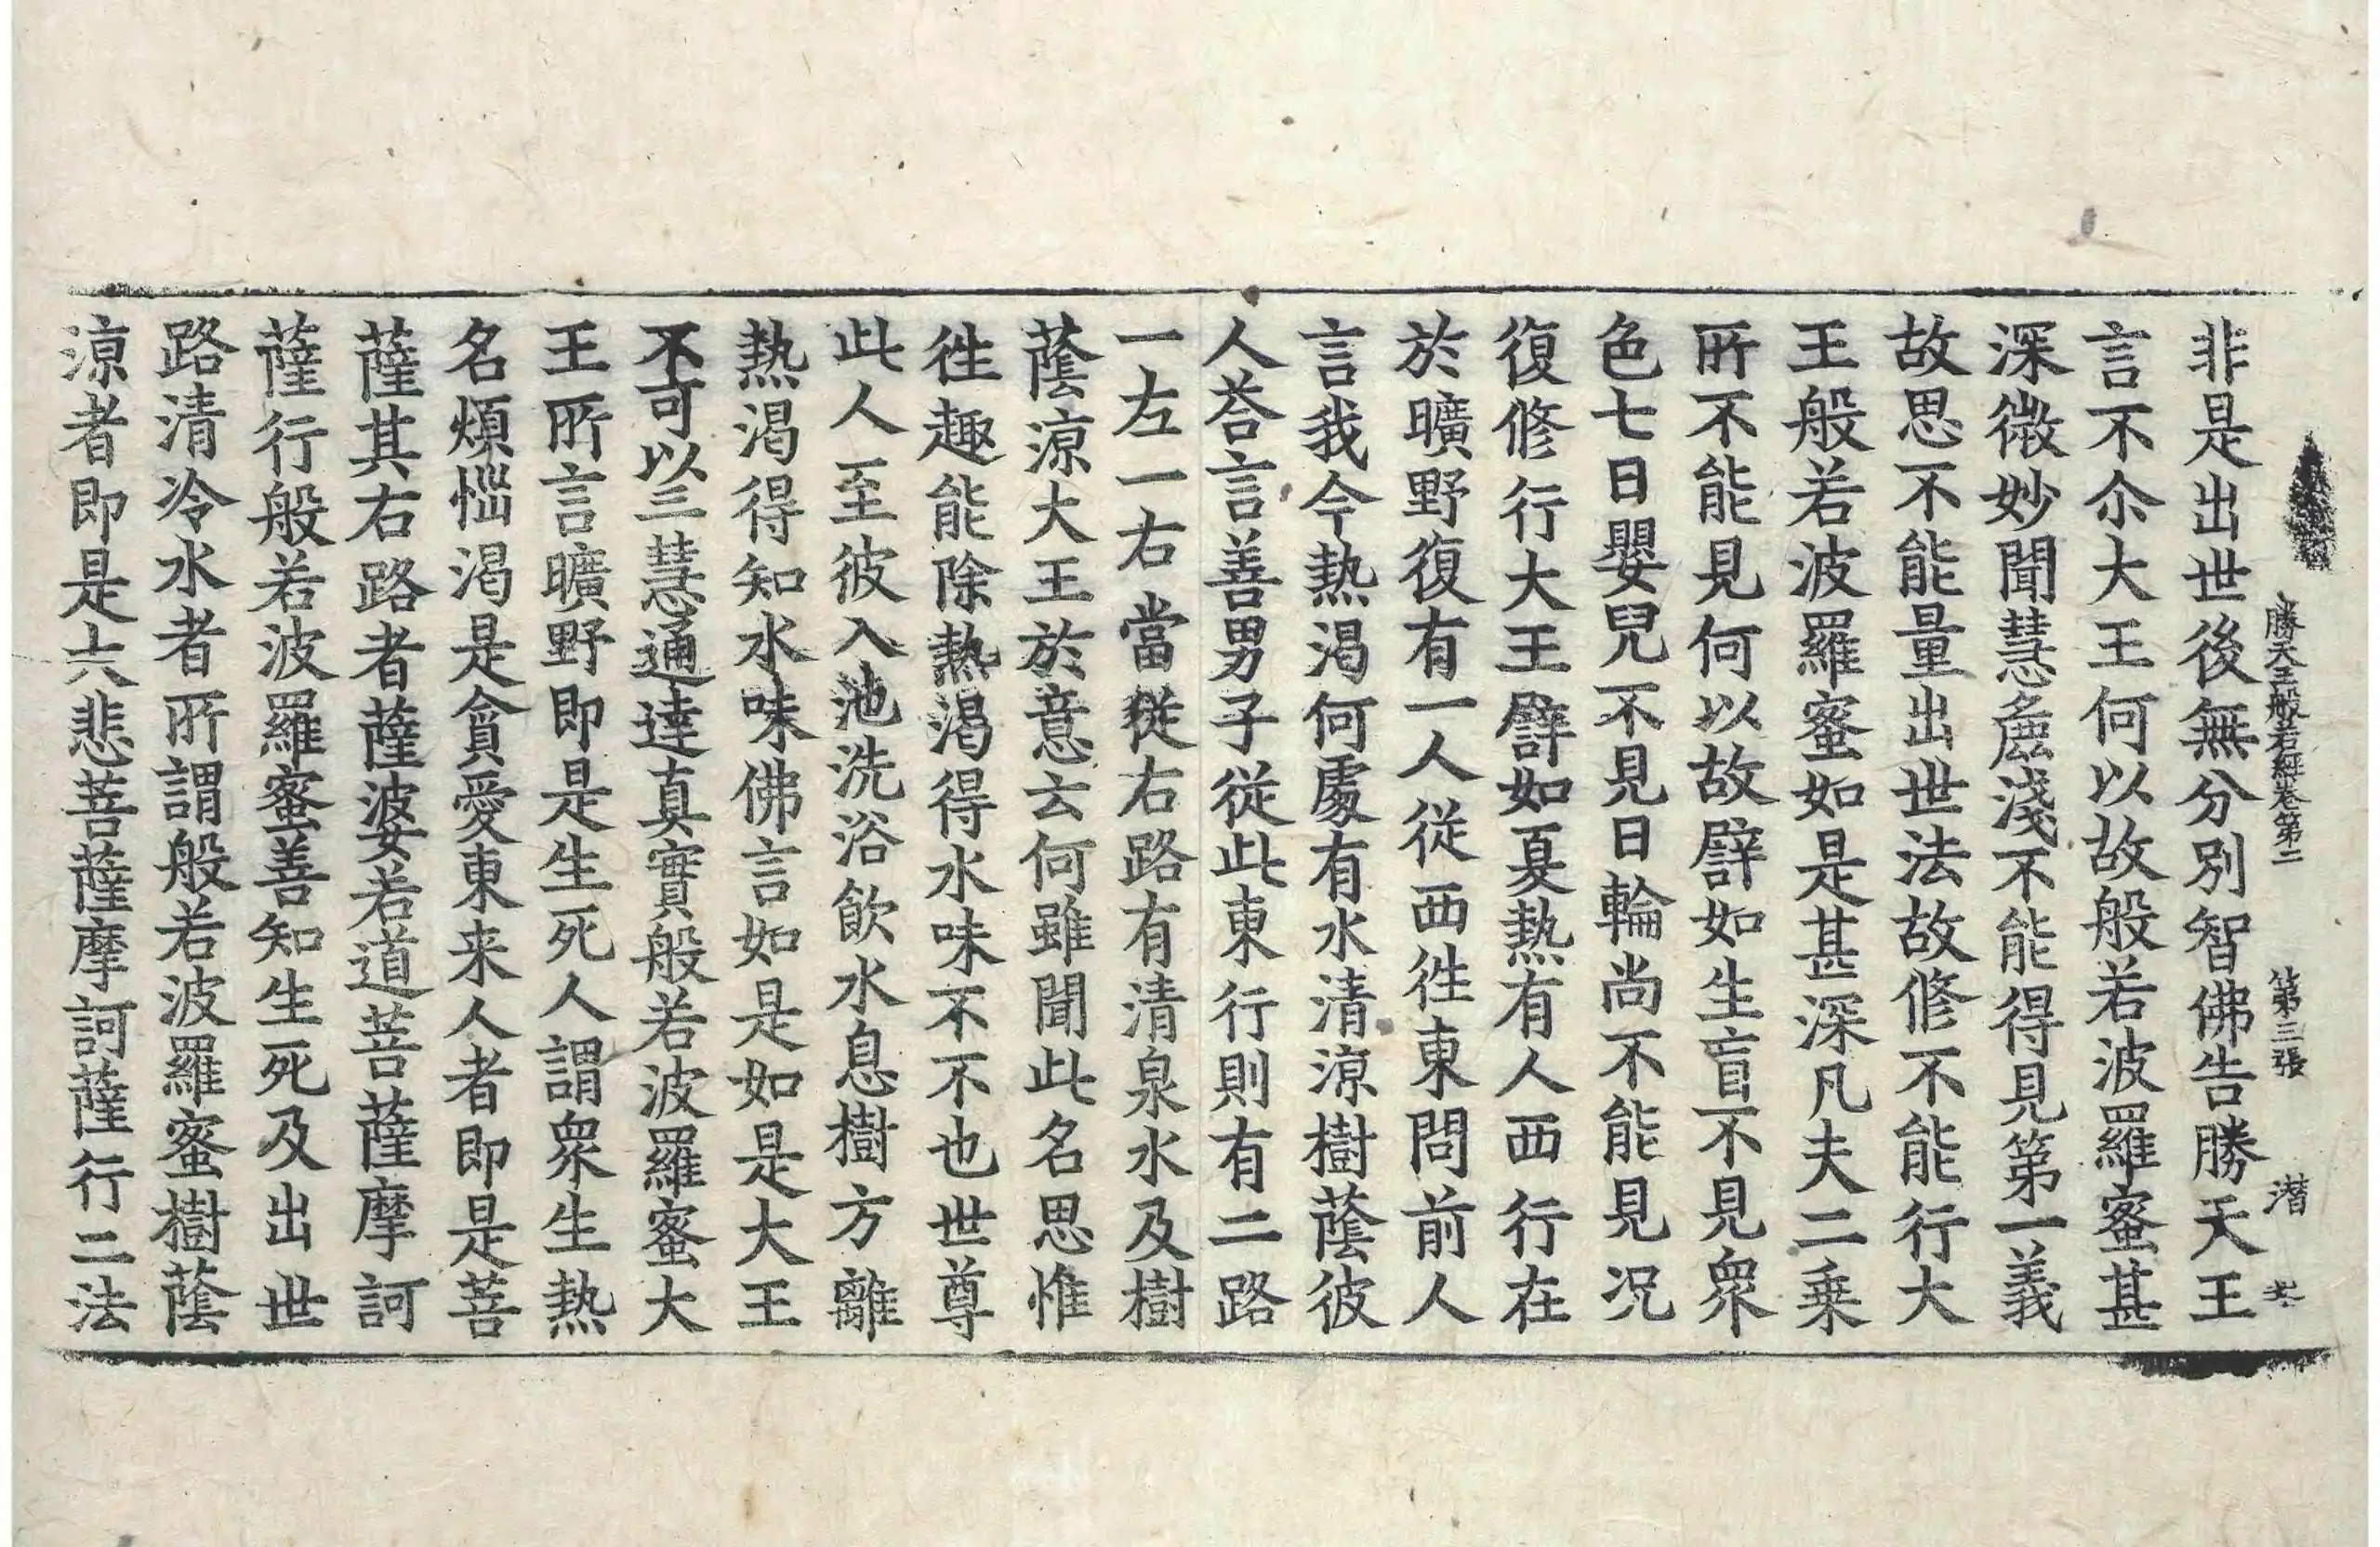 勝天王般若經卷第二　第三張　潜
非是出世後無分別智佛告勝天王
言不尒大王何以故般若波羅蜜甚
深微妙聞慧麁淺不能得見第一義
故思不能量出世法故修不能行大
王般若波羅蜜如是甚深凡夫二乗
所不能見何以故譬如生盲不見衆
色七日嬰兒不見日輪尚不能見況
復修行大王譬如夏熱有人西行在
於曠野復有一人從西徃東問前人
言我今熱渴何處有水清涼樹蔭彼
人荅言善男子從此東行則有二路
一左一右當從右路有清泉水及樹
蔭涼大王於意云何雖聞此名思惟
徃趣能除熱渴得水味不不也世尊
此人至彼入池洗浴飲水息樹方離
熱渴得知水味佛言如是如是大王
不可以三慧通達真實般若波羅蜜大
王所言曠野即是生死人謂衆生熱
名煩惱渴是貪愛東来人者即是菩
薩其右路者薩婆若道菩薩摩訶
薩行般若波羅蜜善知生死及出世
路清冷水者所謂般若波羅蜜樹蔭
涼者即是大悲菩薩摩訶薩行二法